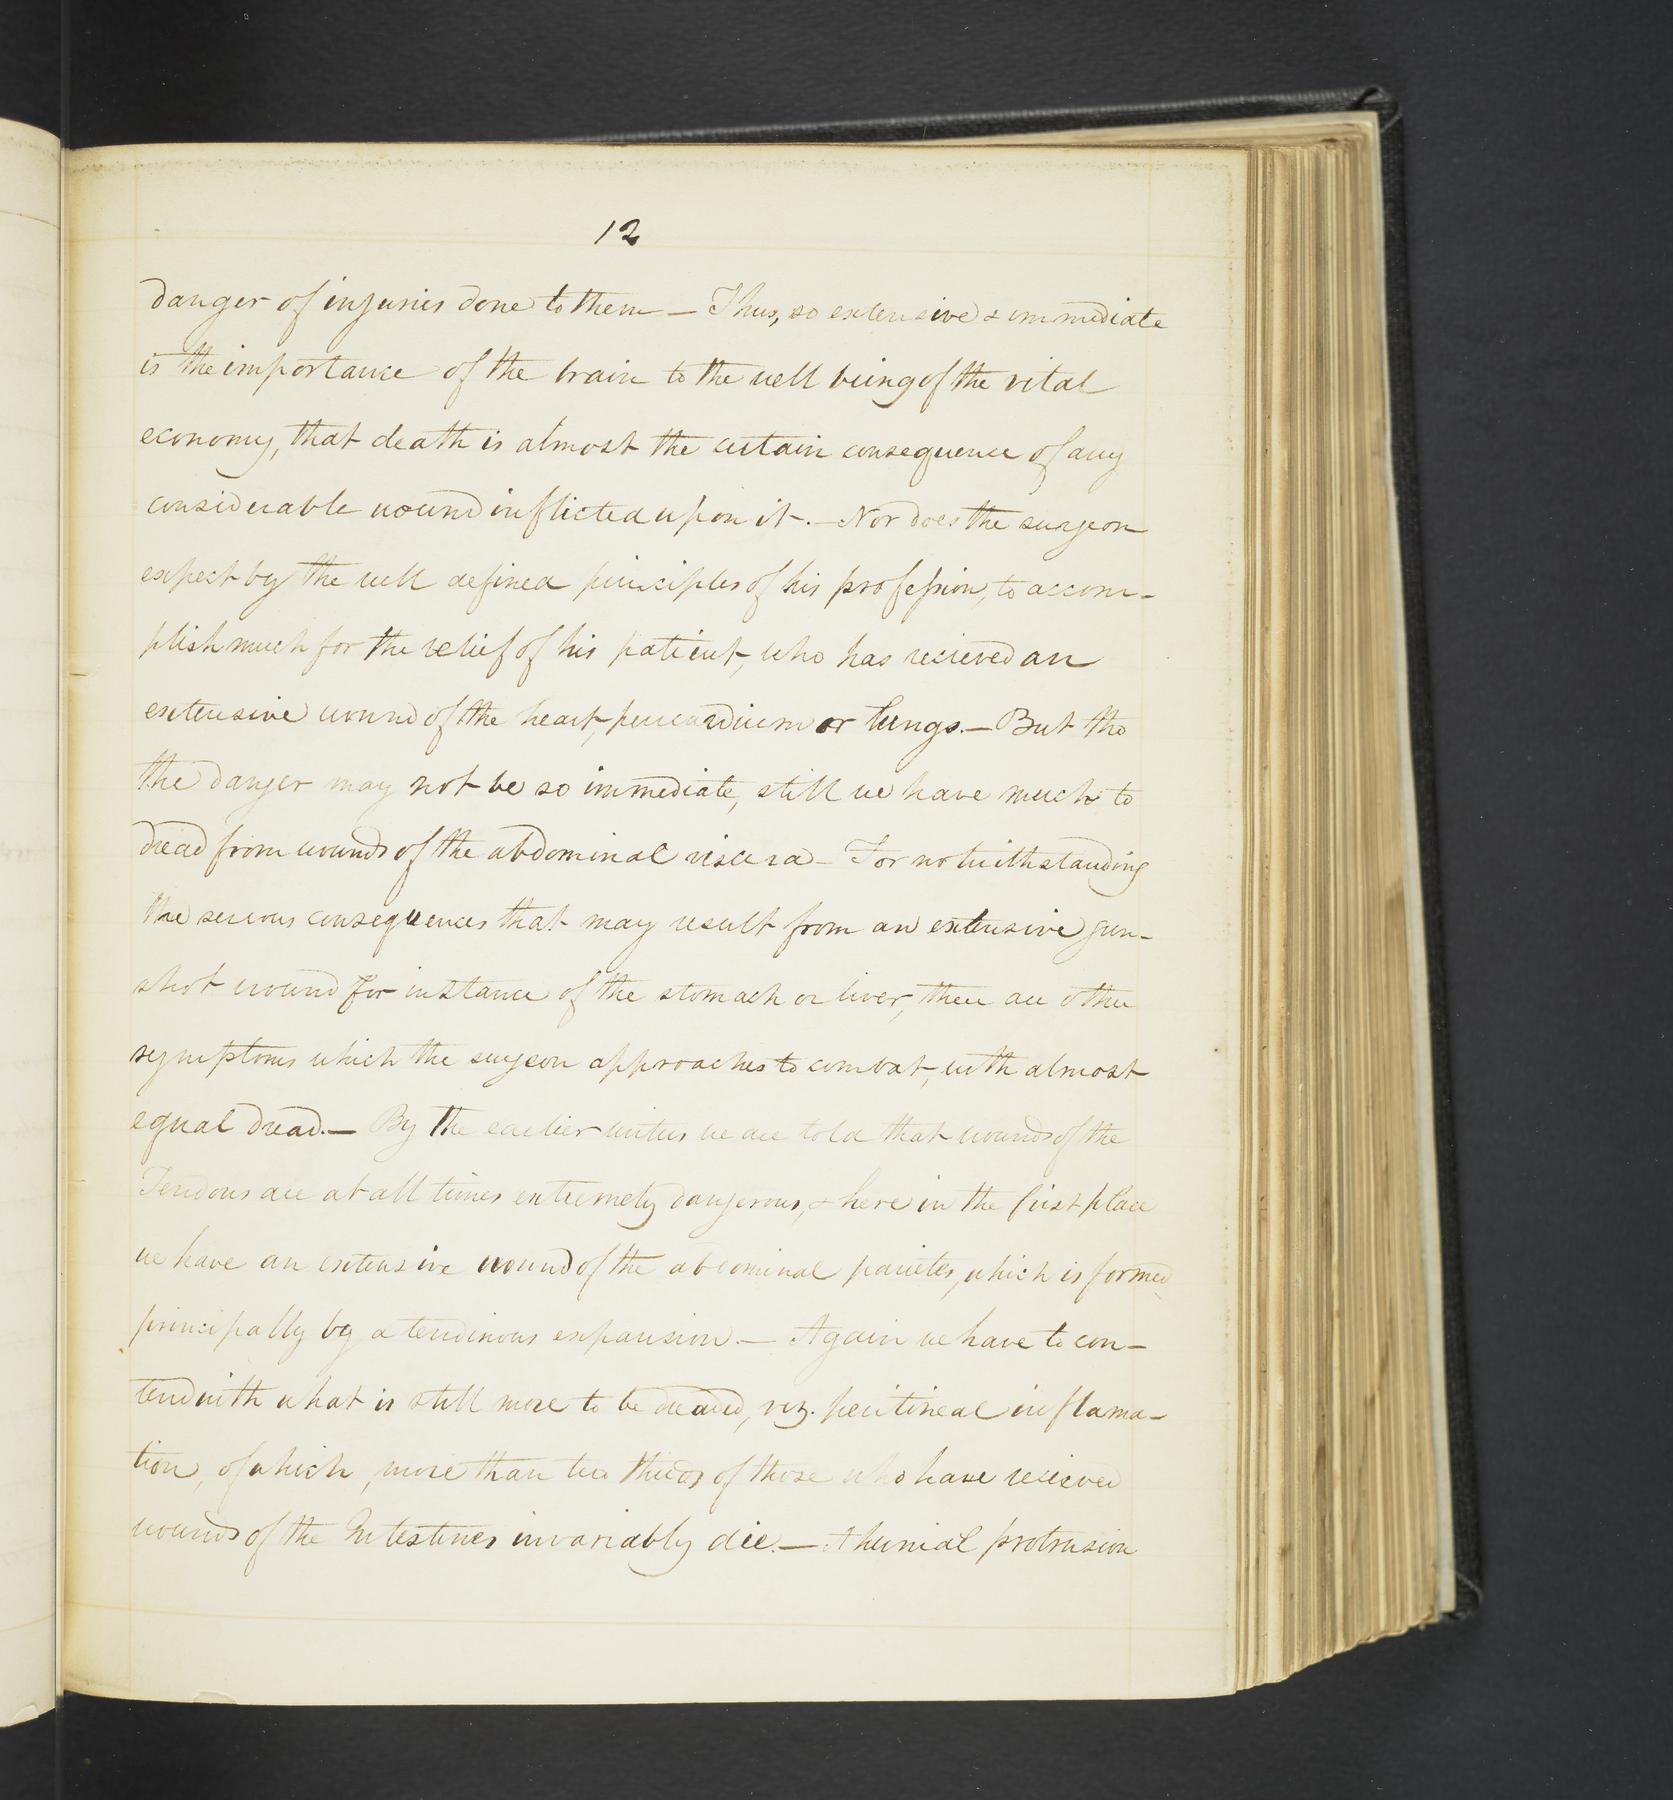 12
danger of injuries done to them — Thus, so extensive & immediate
is the importance of the brain to the well being of the vital
economy, that death is almost the certain consequence of any
considerable wound inflicted upon it. — Nor does the surgeon
expect by the well defined principles of his profession, to accom-
plish much for the relief of his patient, who has recieved an
extensive wound of the heart, pericardium or lungs. — But tho
the danger may not be so immediate, still we have much to
dread from wounds of the abdominal viscera — For notwithstanding
the serious consequences that may result from an extensive gun-
shot wound for instance of the stomach or liver, there are other
symptoms which the surgeon approaches to combat, with almost
equal dread. — By the earlier writers we are told that wounds of the
Tendons are at all times extremely dangerous, & here in the first place
we have an extensive wound of the abdominal parietes, which is formed
principally by a tendinous expansion. — Again we have to con-
tend with what is still more to be dreaded, viz. peritineal inflama-
tion, of which, more than two thirds of those who have recieved
wounds of the Intestines invariably die. — A hernial protrusion